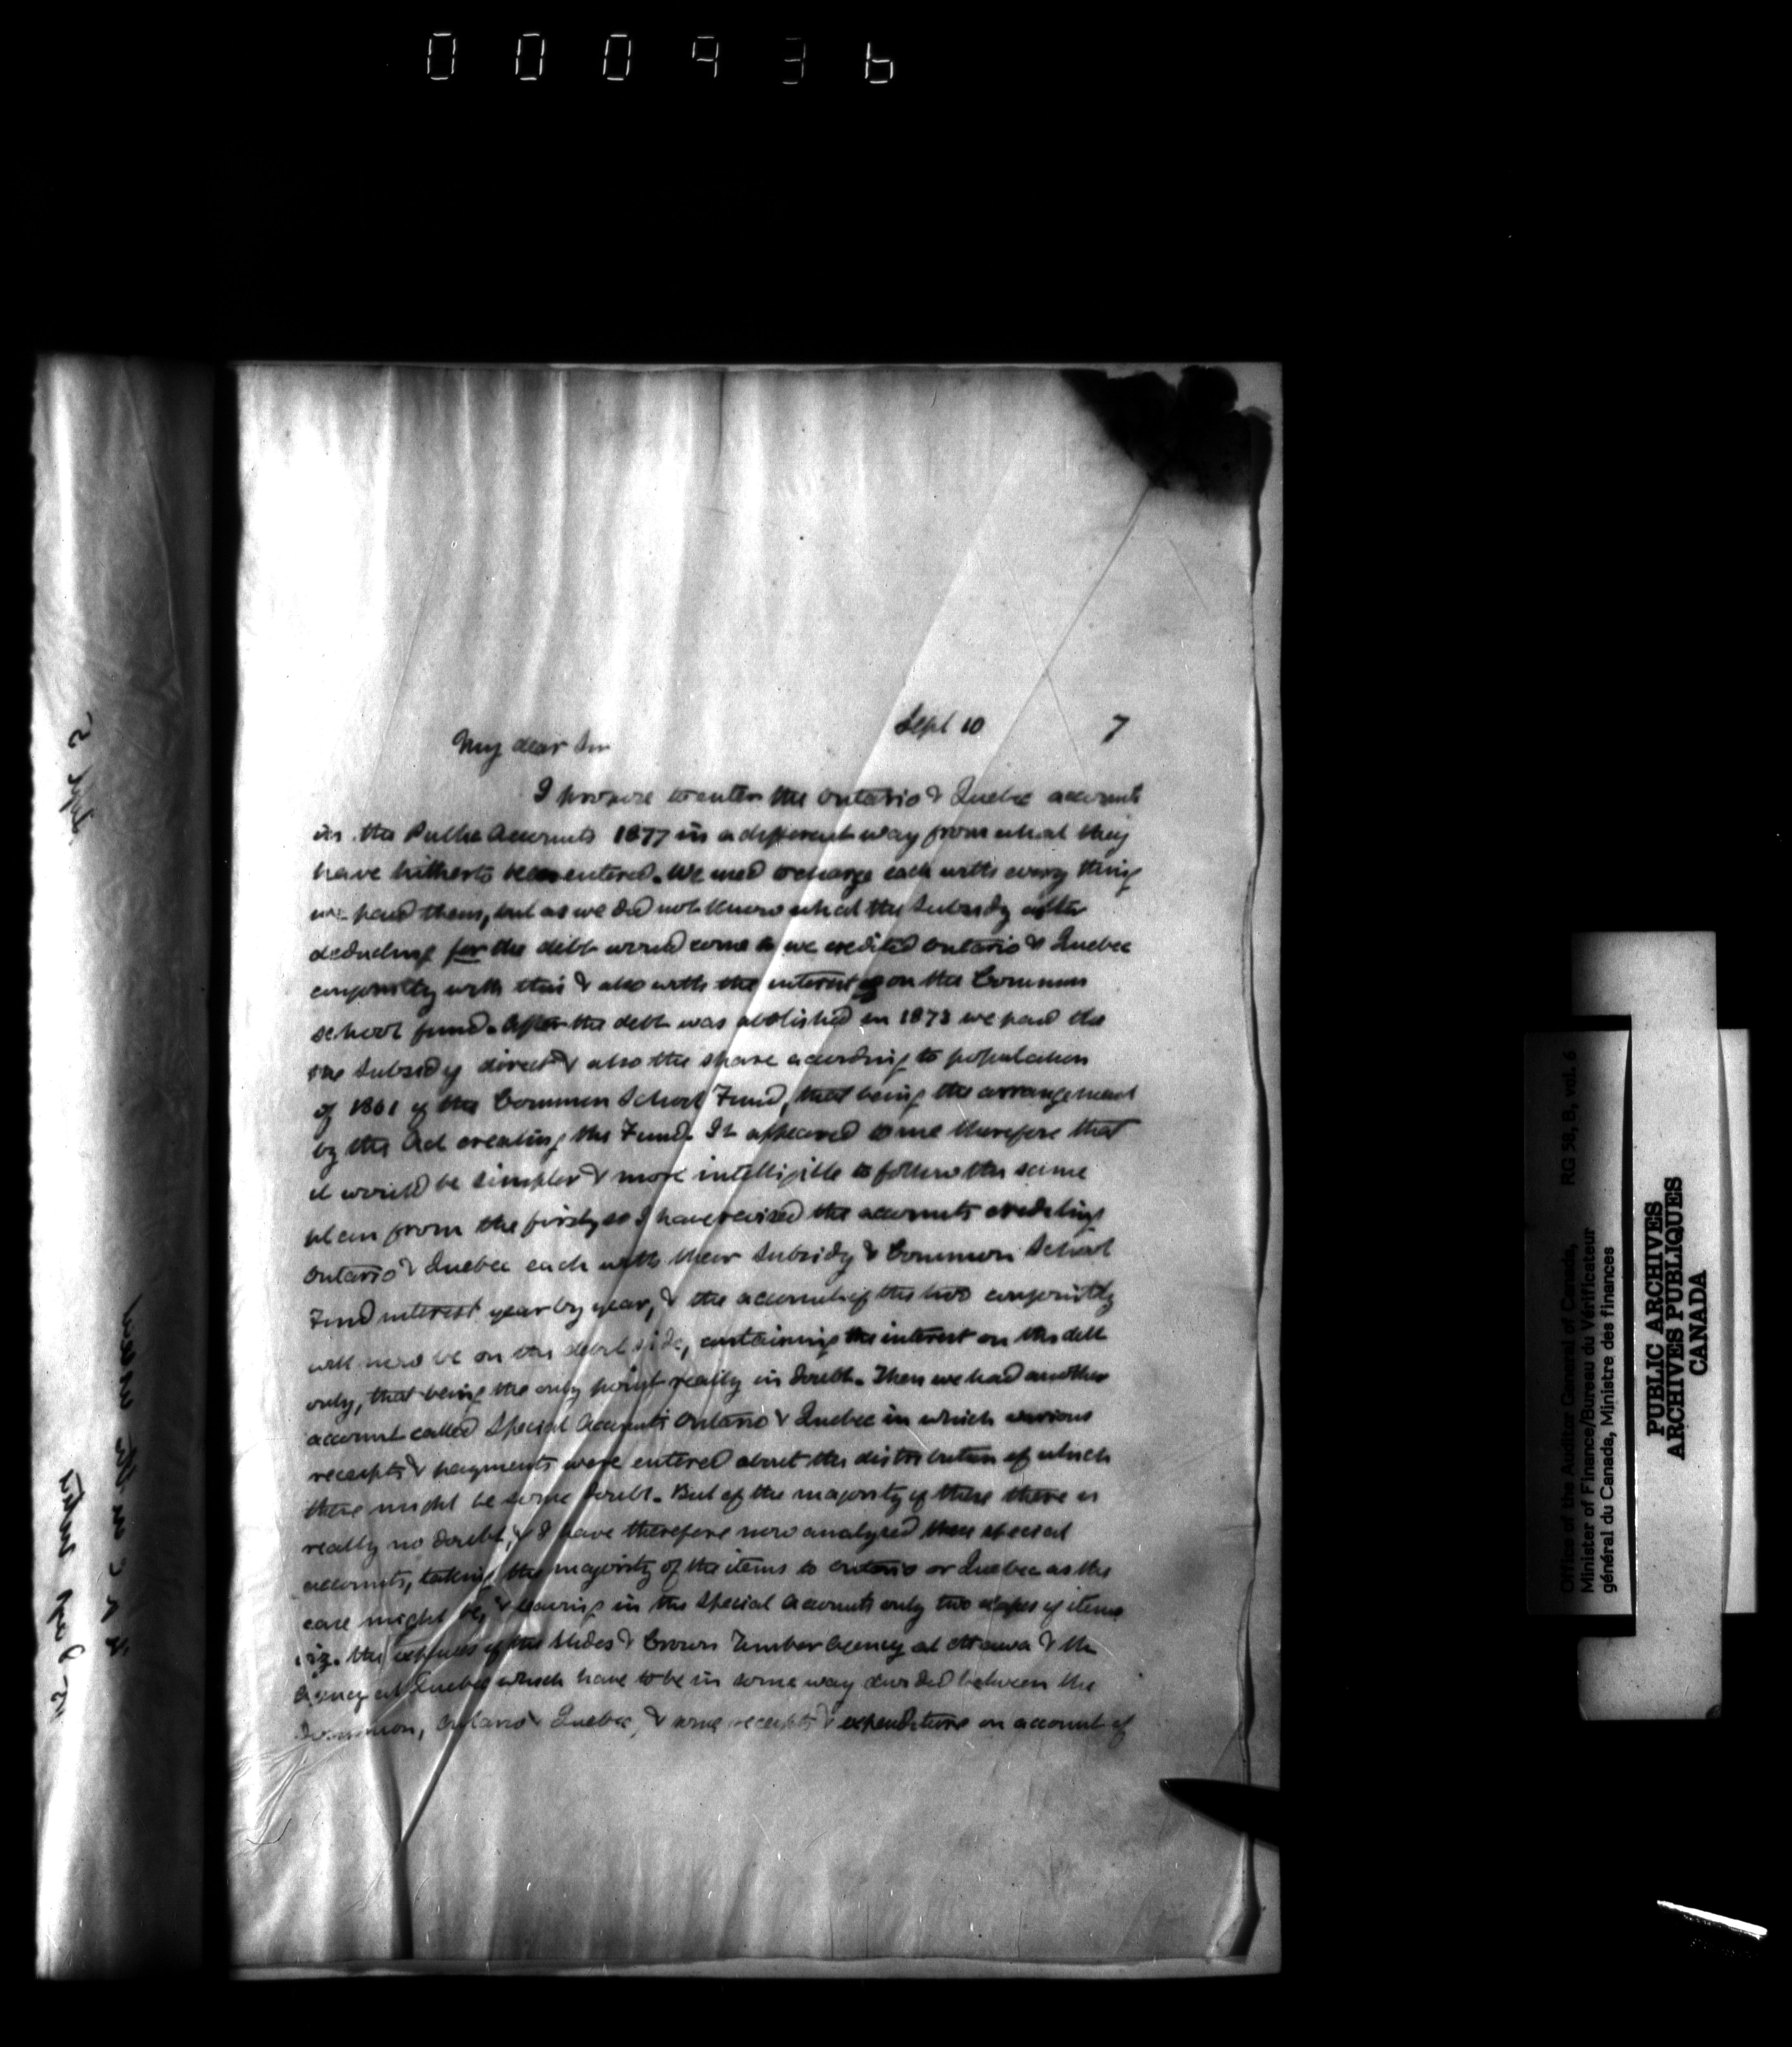 000936
Sept 10 7
My dear Sir
I propose to enter the Ontario & Quebec accounts
in the Public Accounts 1877 in a different way from what they
have hitherto been entered. We used to charge each with every thing
we paid them, but as we did not know what the Subsidy after
deducting for the debt would come to we credited Ontario & Quebec
conjointly with this & also with the interest on the Common
School fund. After the debt was abolished in 1873 we paid the
the Subsidy direct & also the share according to population
of 1861 of the Common School Fund, that being the arrangement
by the Act creating the Fund. It appeared to me therefore that
it would be simpler & more intelligible to follow the same
plan from the first, so I have revised the accounts crediting
Ontario & Quebec each with their Subsidy & Common School
Fund interest year by year, & the account of the two conjointly
will now be on the debit side, containing the interest on the debt
only, that being the only point really in doubt. Then we had another
account called Special Accounts Ontario & Quebec in which various
receipts & payments were entered about the distribution of which
there might be some doubt. But of the majority of these there is
really no doubt, & I have therefore now analysed these special
accounts, taking the majority of the items to Ontario or Quebec as the
case might be, & leaving in the Special Accounts only two classes of items
viz. the expenses of the Slides & Crown Timber Agency at Ottawa & the
Agency at Quebec which have to be in some way divided between the
Dominion, Ontario & Quebec, & some receipts & expenditure on account of
Office of the Auditor General of Canada, RG 58, B, vol. 6
Minister of Finance/Bureau du Vérificateur
général du Canada, Ministre des finances
PUBLIC ARCHIVES
ARCHIVES PUBLIQUES
CANADA